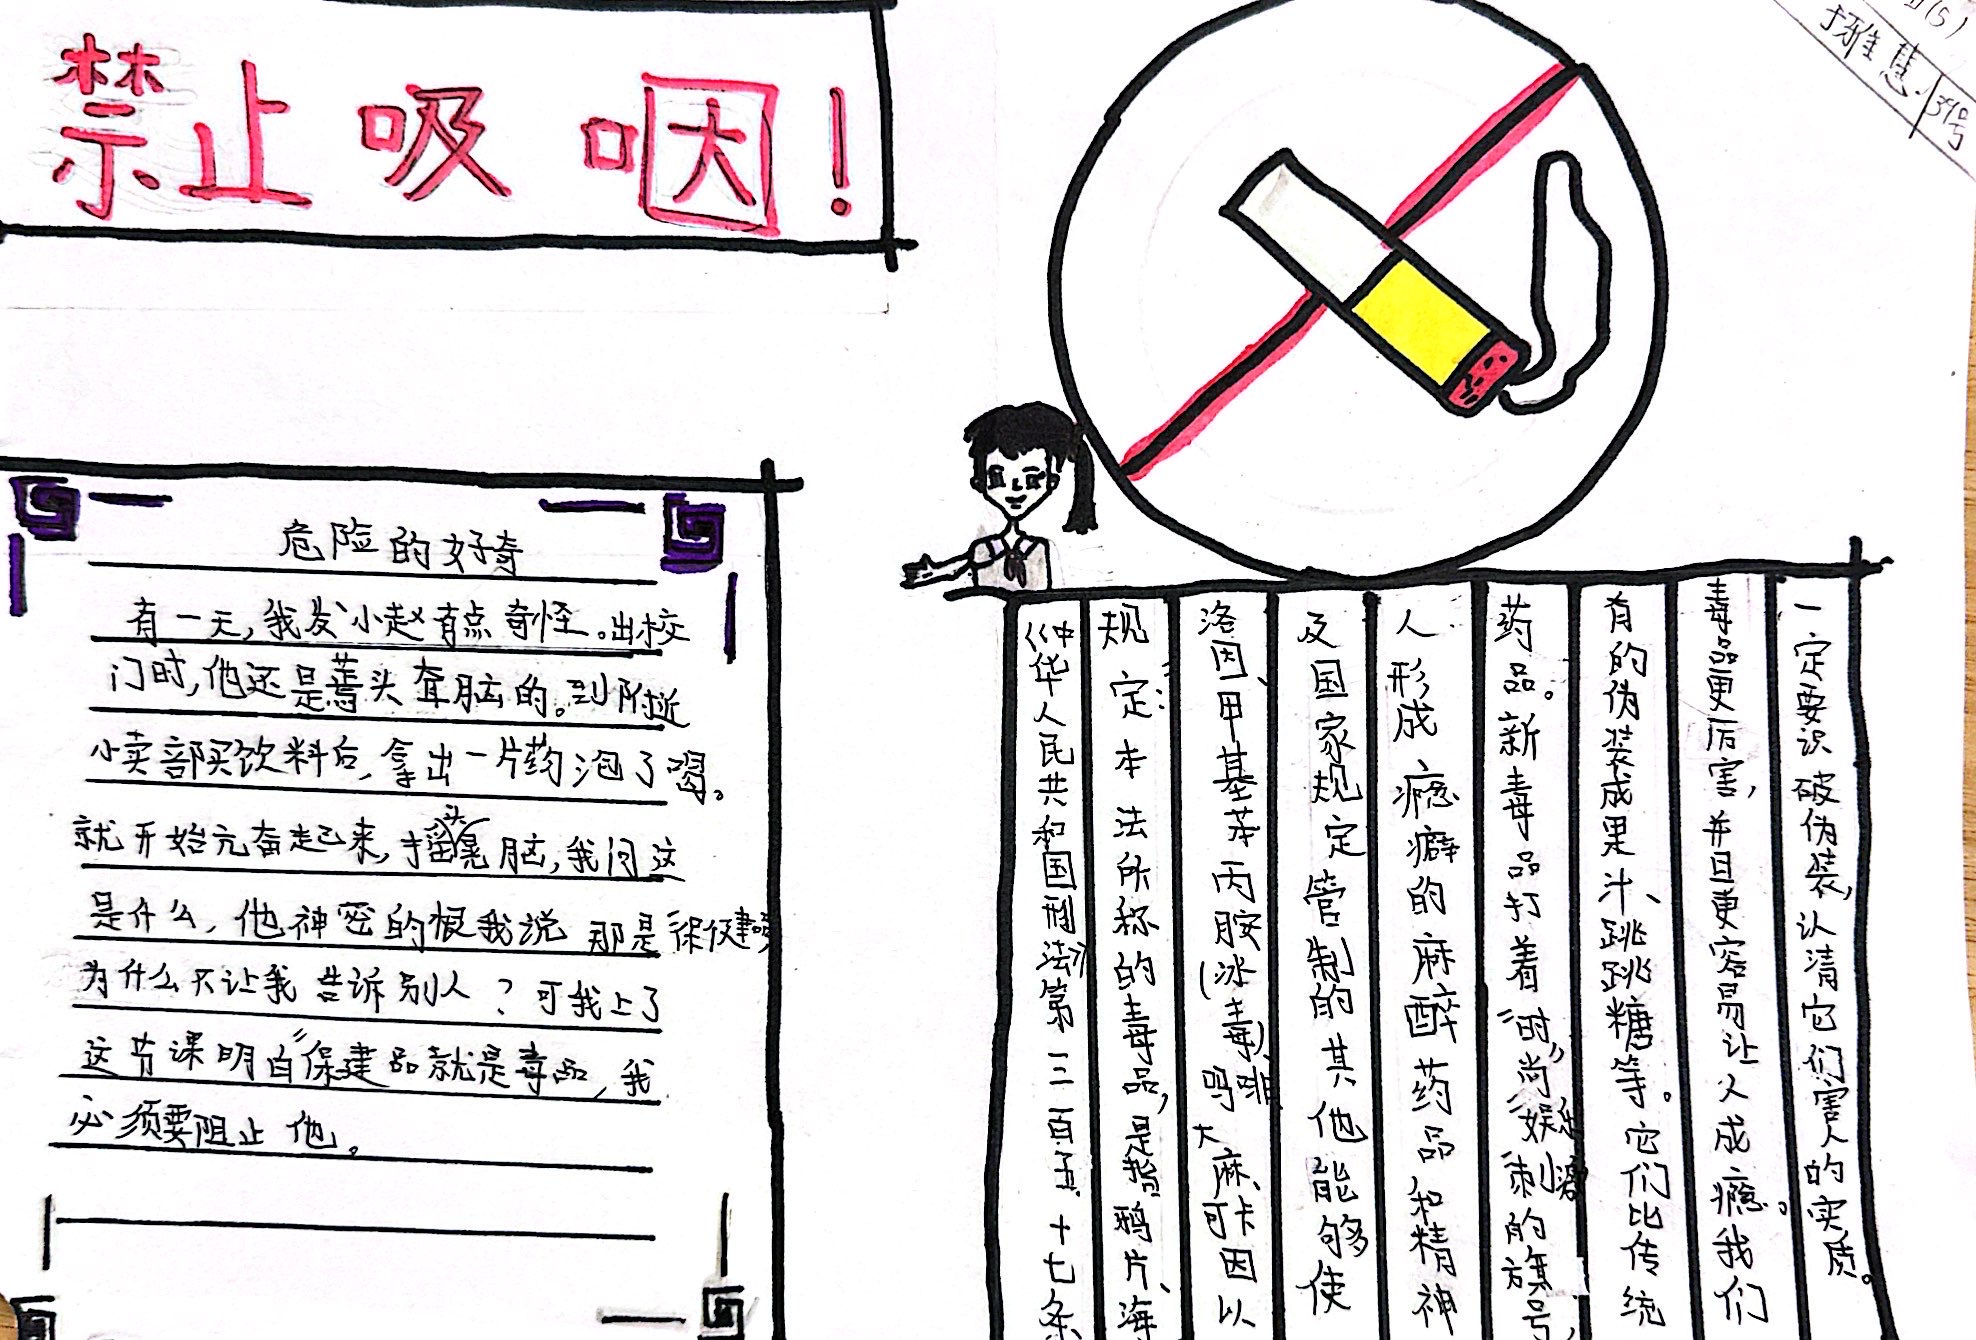 禁止吸咽！
雅慧
39号
危险的好奇
有一天，我发小赵有点奇怪。出校
门时，他还是蔫头耷脑的。到附近
小卖部买饮料后，拿出一片药泡了喝。
就开始亢奋起来，摇头晃脑，我问这
是什么，他神密的恨我说 那是“保健
为什么不让我告诉别人？可我上了
这节课明白“保建品就是毒品，我
必须要阻止他。
《中华人民共和国刑法》第三百五十七条
规定：本法所称的毒品，是指鸦片、海
洛因、甲基苯丙胺（冰毒）、吗啡、大麻、可卡因以
及国家规定管制的其他能够使
人形成瘾癖的麻醉药品和精神
药品。新毒品打着“时尚”“娱乐”“刺激”的旗号，
有的伪装成果汁、跳跳糖等。它们比传统
毒品更厉害，并且更容易让人成瘾。我们
一定要识破伪装，认清它们害人的实质。